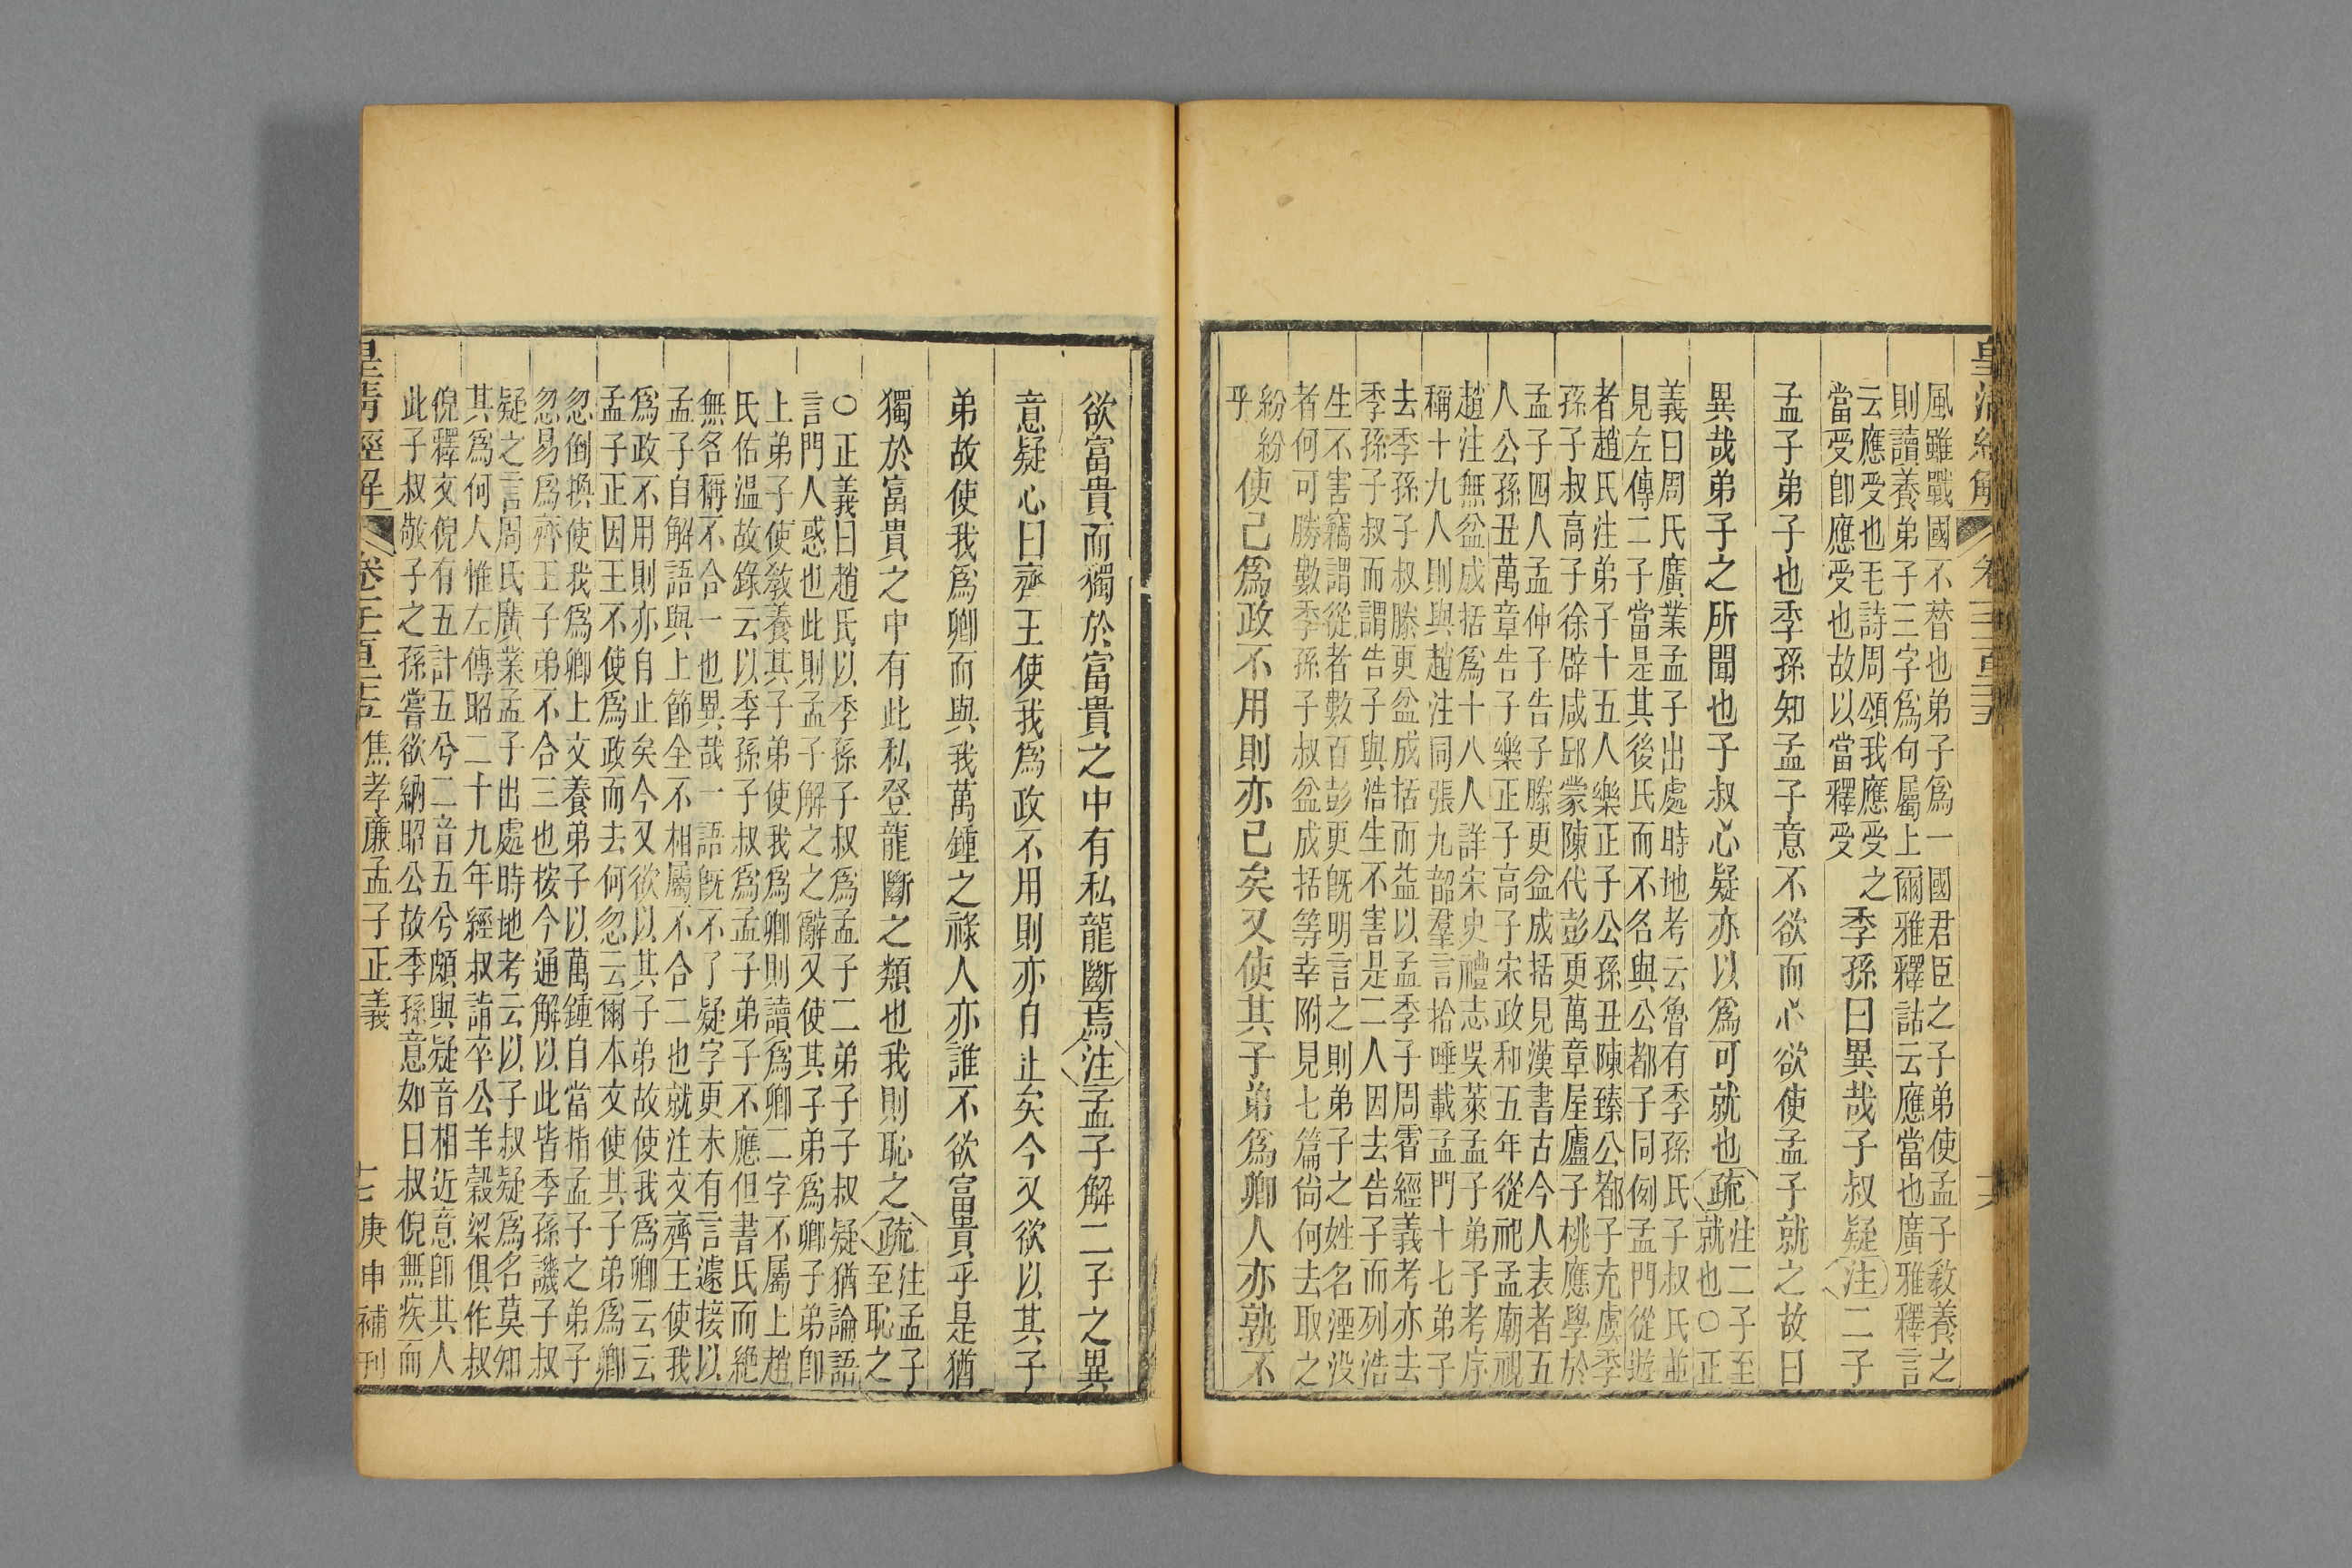 皇清經解 卷一千一百二十五 十六
風雖戰國不替也弟子爲一國君臣之子弟使孟子敎養之
則讀養弟子三字爲句屬上爾雅釋詁云應當也廣雅釋言
云應受也毛詩周頌我應受之
當受卽應受也故以當釋受
季孫曰異哉子叔疑注二子
孟子弟子也季孫知孟子意不欲而心欲使孟子就之故曰
異哉弟子之所聞也子叔心疑亦以爲可就也疏
注二子至
就也〇正
義曰周氏廣業孟子出處時地考云魯有季孫氏子叔氏並
見左傳二子當是其後氏而不名與公都子同例孟門從遊
者趙氏注弟子十五人樂正子公孫丑陳臻公都子充虞季
孫子叔高子徐辟咸邱蒙陳代彭更萬章屋廬子桃應學於
孟子四人孟仲子告子滕更盆成括見漢書古今人表者五
人公孫丑萬章告子樂正子高子宋政和五年從祀孟廟視
趙注無盆成括爲十八人詳宋史禮志吳萊孟子弟子考序
稱十九人則與趙注同張九韶羣言拾唾載孟門十七弟子
去季孫子叔滕更盆成括而益以孟季子周霄經義考亦去
季孫子叔而謂告子與浩生不害是二人因去告子而列浩
生不害竊謂從者數百彭更旣明言之則弟子之姓名湮没
者何可勝數季孫子叔盆成括等幸附見七篇尙何去取之
紛紛
乎
使己爲政不用則亦已矣又使其子弟爲卿人亦孰不
欲富貴而獨於富貴之中有私龍斷焉注孟子解二子之異
意疑心曰齊王使我爲政不用則亦自止矣今又欲以其子
弟故使我爲卿而與我萬鍾之祿人亦誰不欲富貴乎是猶
獨於富貴之中有此私登龍斷之類也我則恥之疏
注孟子
至恥之
〇正義曰趙氏以季孫子叔爲孟子二弟子子叔疑猶論語
言門人惑也此則孟子解之之辭又使其子弟爲卿子弟卽
上弟子使敎養其子弟使我爲卿則讀爲卿二字不屬上趙
氏佑温故錄云以季孫子叔爲孟子弟子不應但書氏而絶
無名稱不合一也異哉一語旣不了疑字更未有言遽接以
孟子自解語與上節全不相屬不合二也就注文齊王使我
爲政不用則亦自止矣今又欲以其子弟故使我爲卿云云
孟子正因王不使爲政而去何忽云爾本文使其子弟爲卿
忽倒換使我爲卿上文養弟子以萬鍾自當指孟子之弟子
忽易爲齊王子弟不合三也按今通解以此皆季孫譏子叔
疑之言周氏廣業孟子出處時地考云以子叔疑爲名莫知
其爲何人惟左傳昭二十九年經叔詣卒公羊穀梁俱作叔
倪釋文倪有五計五兮二音五兮頗與疑音相近意卽其人
此子叔敬子之孫嘗欲納昭公故季孫意如曰叔倪無疾而
皇清經解 卷一千一百二十五 焦孝廉孟子正義 十七 庚申補刊